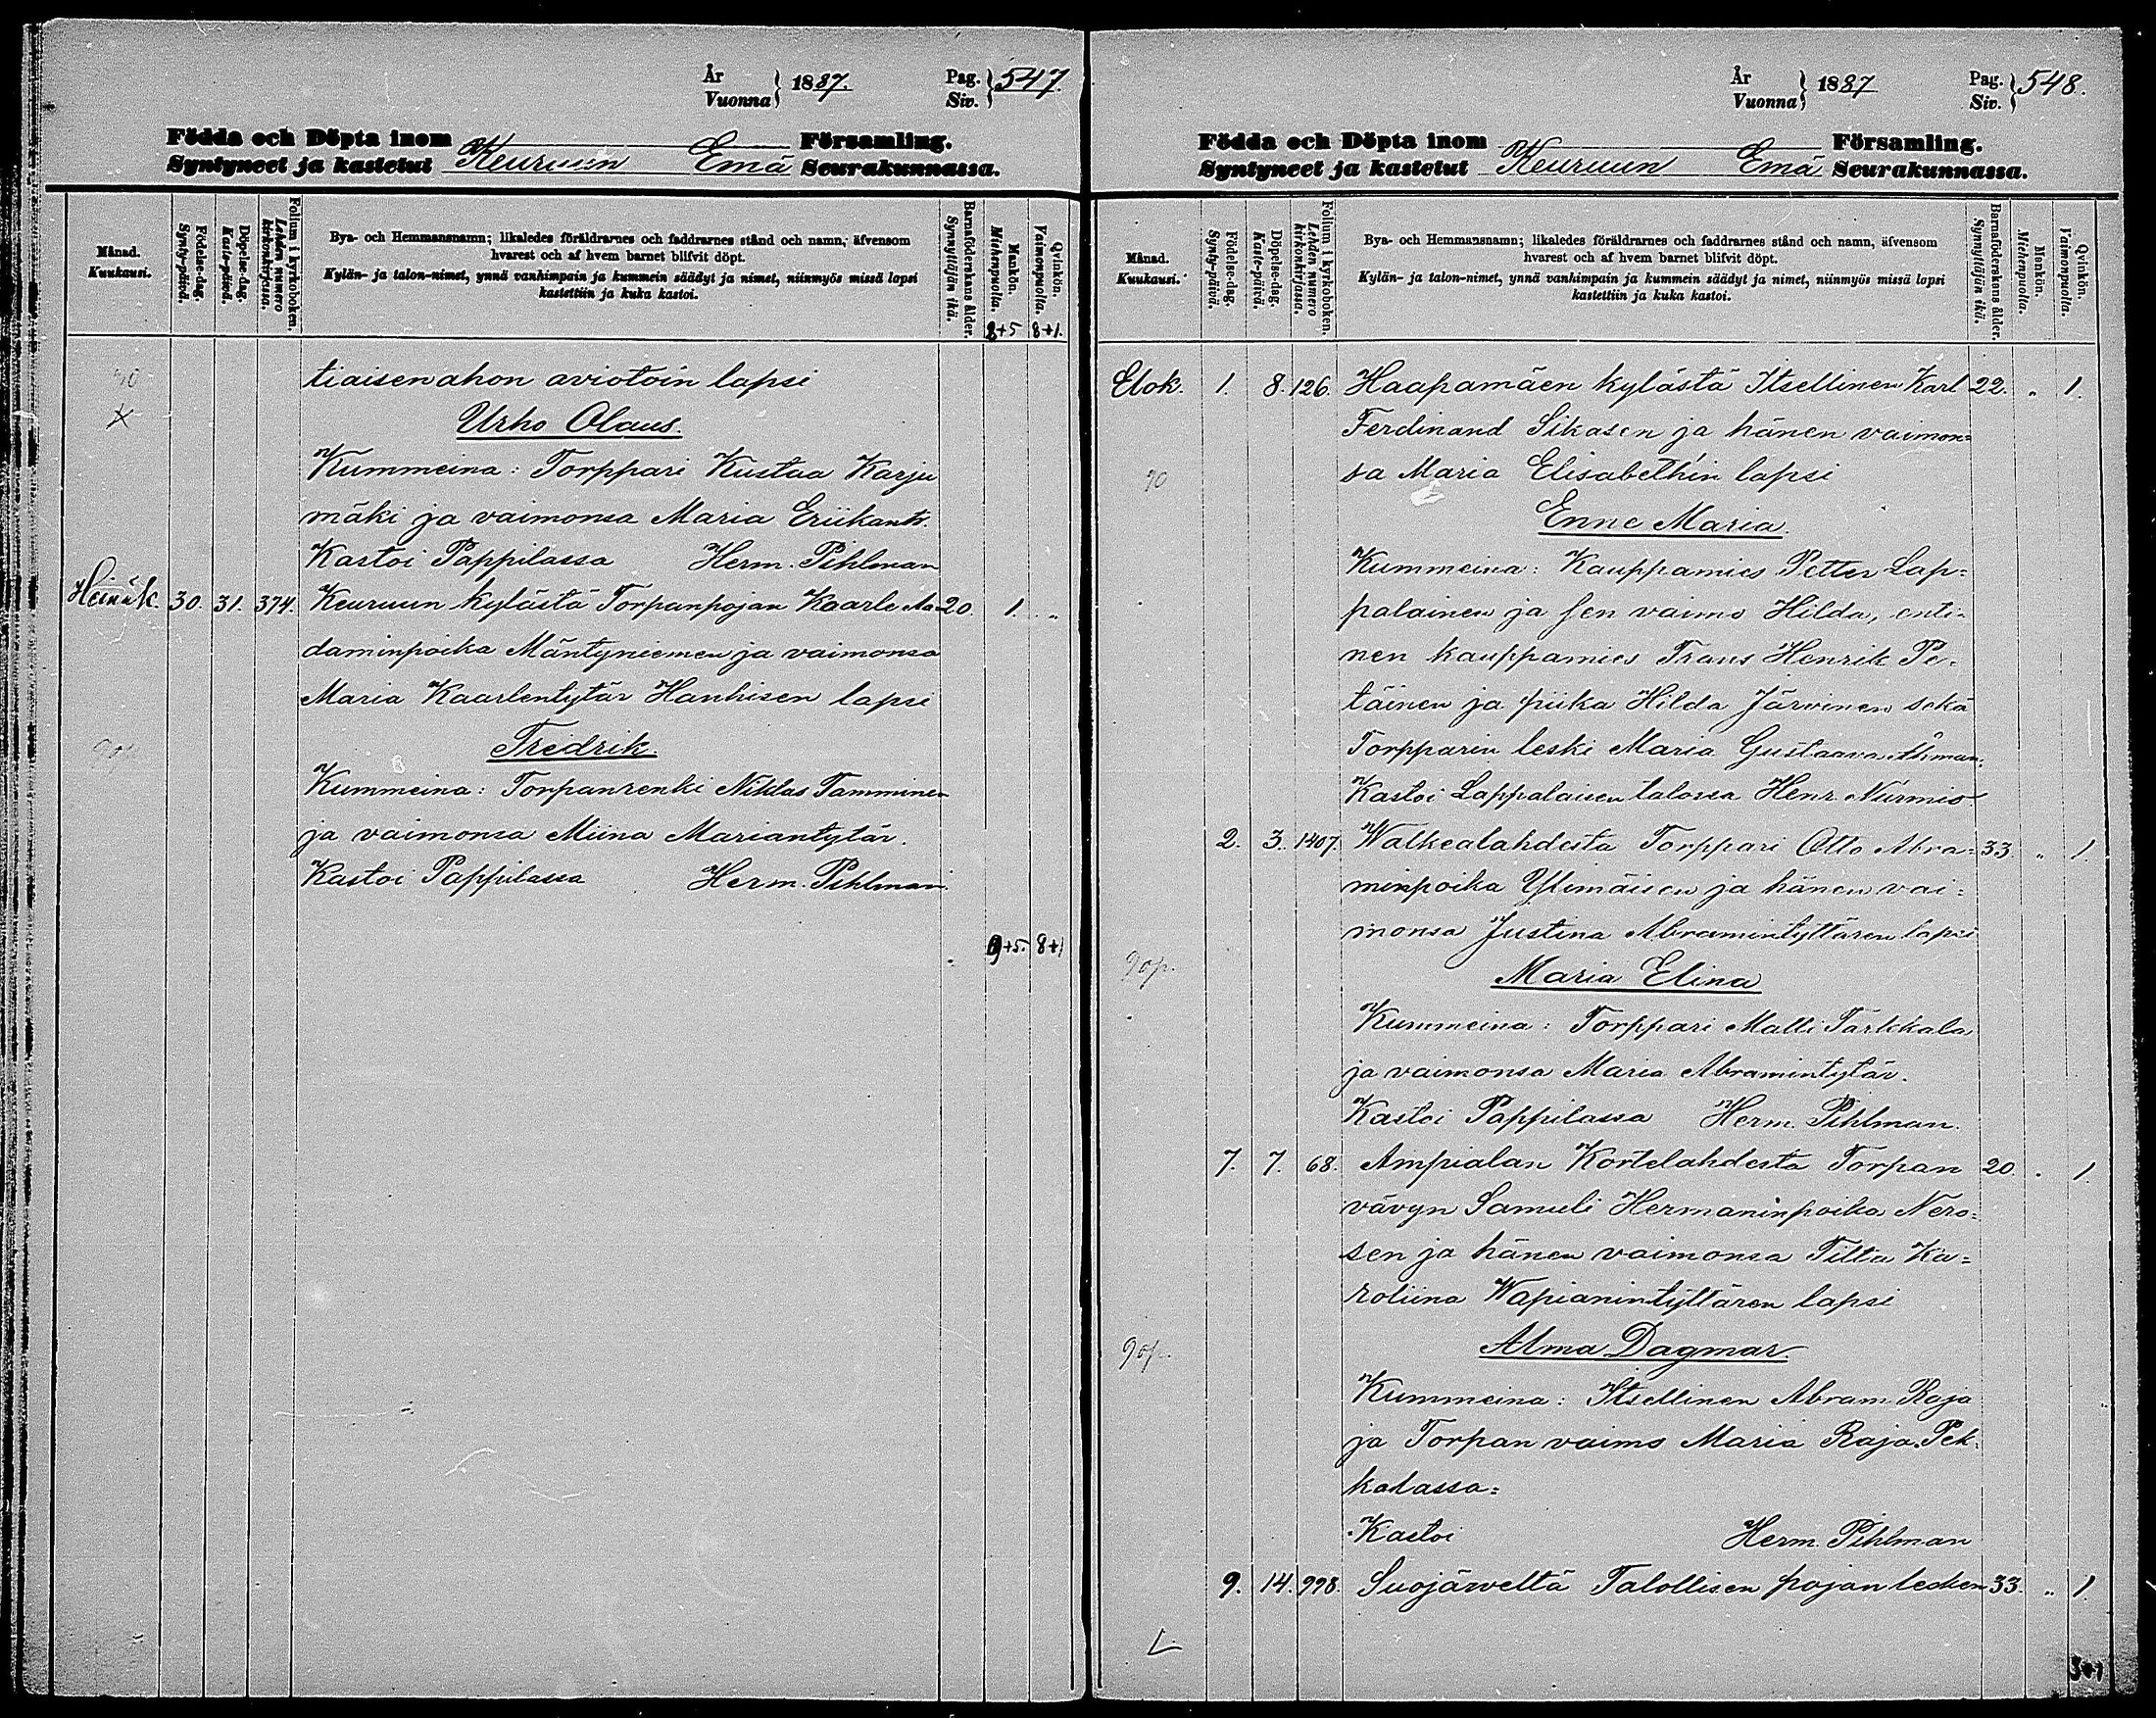 År
Vuonna } 1887.
Pag.
Siv. } 547.
Födda och Döpta inom Församling.
Syntyneet ja kastetut Keuruun Emä Seurakunnassa.
Månad.
Kuukausi.
Födelse-dag.
Synty-päivä.
Döpelse-dag.
Kaste-päivä.
Folium i kyrkoboken.
Lehden numero kirkonkirjassa.
Bya- och Hemmansnamn; likaledes föräldrarnes och faddrarnes stånd och namn, äfvensom
hvarest och af hvem barnet blifvit döpt.
Kylän- ja talon-nimet, ynnä vanhimpain ja kummein säädyt ja nimet, niinmyös missä lapsi
kastettiin ja kuka kastoi.
Barnaföderskans ålder.
Synnyttäjän ikä.
Mankön.
Miehenpuolta.
Qvinkön.
Vaimonpuolta.
8+5 8+1.
tiaisenahon aviotoin lapsi
Urho Olaus.
Kummeina: Torppari Kustaa Karju
mäki ja vaimonsa Maria Eriikantr.
Kastoi Pappilassa Herm. Pihlman
Heinäk. 30. 31. 374. Keuruun kylästä Torpanpojan Kaarle Aa- 20. 1. „
daminpoika Mäntyniemen ja vaimonsa
Maria Kaarlentytär Hanhisen lapsi
Fredrik.
Kummeina: Torpanrenki Niklas Tamminen
ja vaimonsa Miina Mariantytär.
Kastoi Pappilassa Herm. Pihlman.
9+5. 8+1
År
Vuonna } 1887
Pag.
Siv. } 548.
Födda och Döpta inom Församling.
Syntyneet ja kastetut Keuruun Emä Seurakunnassa.
Månad.
Kuukausi.
Födelse-dag.
Synty-päivä.
Döpelse-dag.
Kaste-päivä.
Folium i kyrkoboken.
Lehden numero kirkonkirjassa.
Bya- och Hemmansnamn; likaledes föräldrarnes och faddrarnes stånd och namn, äfvensom
hvarest och af hvem barnet blifvit döpt.
Kylän- ja talon-nimet, ynnä vanhimpain ja kummein säädyt ja nimet, niinmyös missä lapsi
kastettiin ja kuka kastoi.
Barnaföderskans ålder.
Synnyttäjän ikä.
Menkön.
Miehenpuolta.
Qvinkön.
Vaimonpuolta.
Elok. 1. 8. 126. Haapamäen kylästä Itsellinen Karl 22. „ 1.
Ferdinand Sikasen ja hänen vaimon=
sa Maria Elisabethin lapsi
Enne Maria.
Kummeina: Kauppamies Petter Lap=
palainen ja sen vaimo Hilda, enti=
nen kauppamies Frans Henrik Pe=
täinen ja piika Hilda Järvinen sekä
Torpparin leski Maria Gustaava Åhman.
Kastoi Lappalaisen talossa Henr. Nurmio
2. 3. 1407. Walkealahdesta Torppari Otto Abra= 33. „ 1.
minpoika Ylimäisen ja hänen vai=
monsa Justina Abramintyttären lapsi
90p. Maria Elina
Kummeina: Torppari Matti Tarkkala
ja vaimonsa Maria Abramintytär.
Kastoi Pappilassa Herm. Pihlman.
7. 7. 68. Ampialan Kortelahdesta Torpan 20. „ 1.
vävyn Samuli Hermaninpoika Nero=
sen ja hänen vaimonsa Tilta Ka=
roliina Wapianintyttären lapsi
90p. Alma Dagmar.
Kummeina: Itsellinen Abram Raja
ja Torpan vaimo Maria Raja. Pek=
kalassa=
Kastoi Herm. Pihlman
9. 14. 998. Suojärveltä Talollisen pojan lesken 33. „ 1.